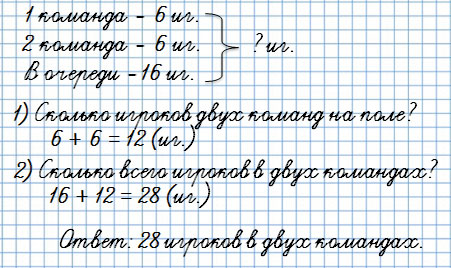 1 команда – 6 иг.
2 команда – 6 иг. ? иг.
В очереди – 16 иг.
1) Сколько игроков двух команд на поле?
6 + 6 = 12 (иг.)
2) Сколько всего игроков в двух командах?
16 + 12 = 28 (иг.)
Ответ: 28 игроков в двух командах.